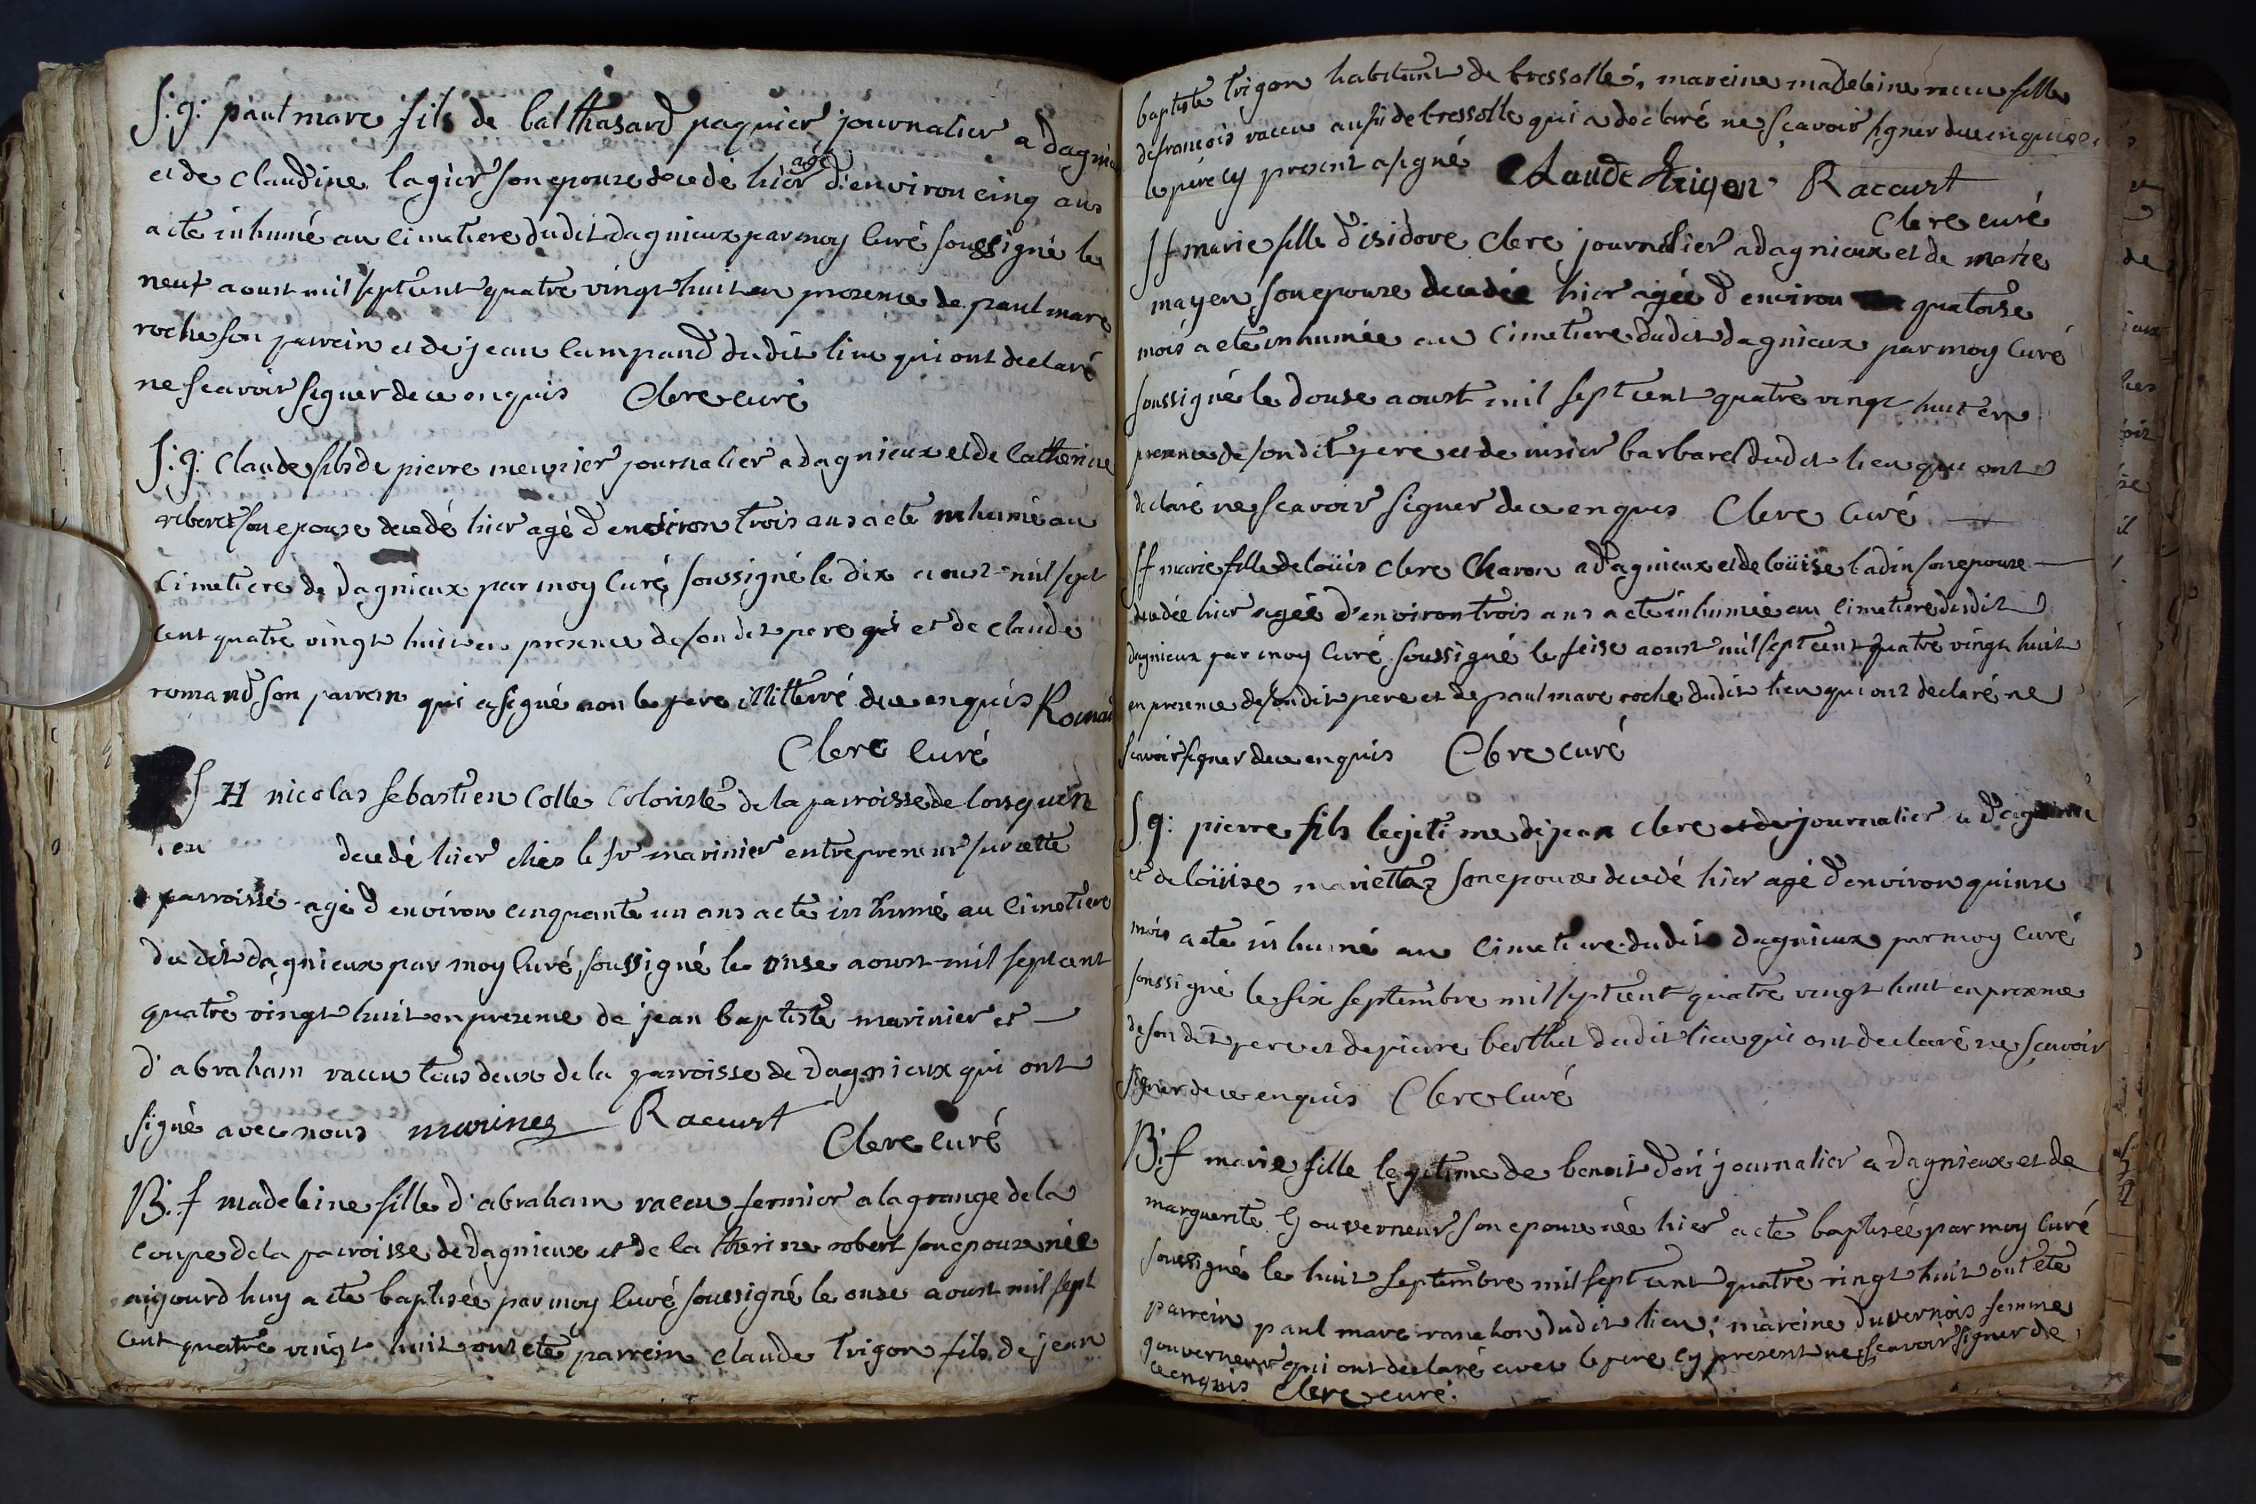 S: g: paul marc fils de balthasard paquier journalier a dagnieu
et de claudine lagier son epouze decedé hier agé d'environ cinq ans
a eté inhumé au cimetiere dudit dagnieux par moy curé soussigné le
neuf aoust mil sept cent quatre vingt huit en presence de paul marc
roche son parrein et de jean campand dudit lieu qui ont declaré
ne scavoir signer de ce enquis Clere curé
S: g: Claude fils de pierre meunier journalier a dagnieux et de catherine
reberet son epouze decedé hier agé d'environ trois ans a eté inhumé au
cimetiere de dagnieux par moy curé soussigné le dix aoust mil sept
cent quatre vingt huit en presence de son dit pere qui et de claude
romand son parrein qui a signé non le pere illitterré de ce enquis Romand
Clere curé
S H nicolas sebastien Colle Coloriste de la parroisse de lorquin
en decedé hier chés le sr marinier entrepreneur sur cette
parroisse agé d'environ cinquante un ans a eté inhumé au cimetiere
du dit dagnieux par moy curé soussigné le onse aoust mil sept cent
quatre vingt huit en presence de jean baptiste marinier et
d'abraham raccu tous deux de la parroisse de dagnieux qui ont
signé avec nous marinez Racurt
Clere curé
B. f madeleine fille d'abraham racou fermier a la grange de la
coupe de la parroisse de dagnieux et de catherine robert son epouze née
aujourd huy a eté baptisée par moy curé soussigné le onse aoust mil sept
cent quatre vingt huit ont eté parrein claude trigon fils de jean
baptiste trigon habitant de bressolle, mareine madeleine racu fille
de francois raccu aussi de bressolle qui a declaré ne scavoir signer de ce enquise
le pere cy present a signé Claude trigon Racurt
Clere curé
S f marie fille d'isidore Clere journalier a dagnieux et de marie
mayen son epouze decedée hier agée d'environ quatorse
mois a eté inhumée au cimetiere dudit dagnieux par moy curé
soussigné le douse aoust mil sept cent quatre vingt huit en
presence de son dit pere et de barbaret dudit lieu qui ont
declaré ne scavoir signer de ce enquis Clere curé
S f marie fille de loüis clere Charon a dagnieux et de loüise badin son epouze
decedée hier agée d'environ trois ans a eté inhumée au cimetiere dudit
dagnieux par moy curé soussigné le seise aoust mil sept cent quatre vingt huit
en presence de son dit pere et de paul marc roche dudit lieu qui ont declaré ne
scavoir signer de ce enquis Clere curé
S g: pierre fils legitime de jean clere journalier a dagnieu
et de loüise mariettaz son epouze decedé hier agé d'environ quinze
mois a eté inhumé au cimetiere dudit dagnieux par moy curé
soussigné le six septembre mil sept cent quatre vingt huit en presence
de son dit pere et de pierre berthet dudit lieu qui ont declaré ne scavoir
signer de ce enquis Clere curé
B: f marie fille legitime de benoit dori journalier a dagnieux et de
marguerite gouverneur son epouze née hier a eté baptisée par moy curé
soussigné le huit septembre mil sept cent quatre vingt huit ont eté
parrein paul marc ranchon dudit lieu; mareine duvernois femme
gouverneur qui ont declaré avec le pere cy present ne scavoir signer de
ce enquis Clere curé.